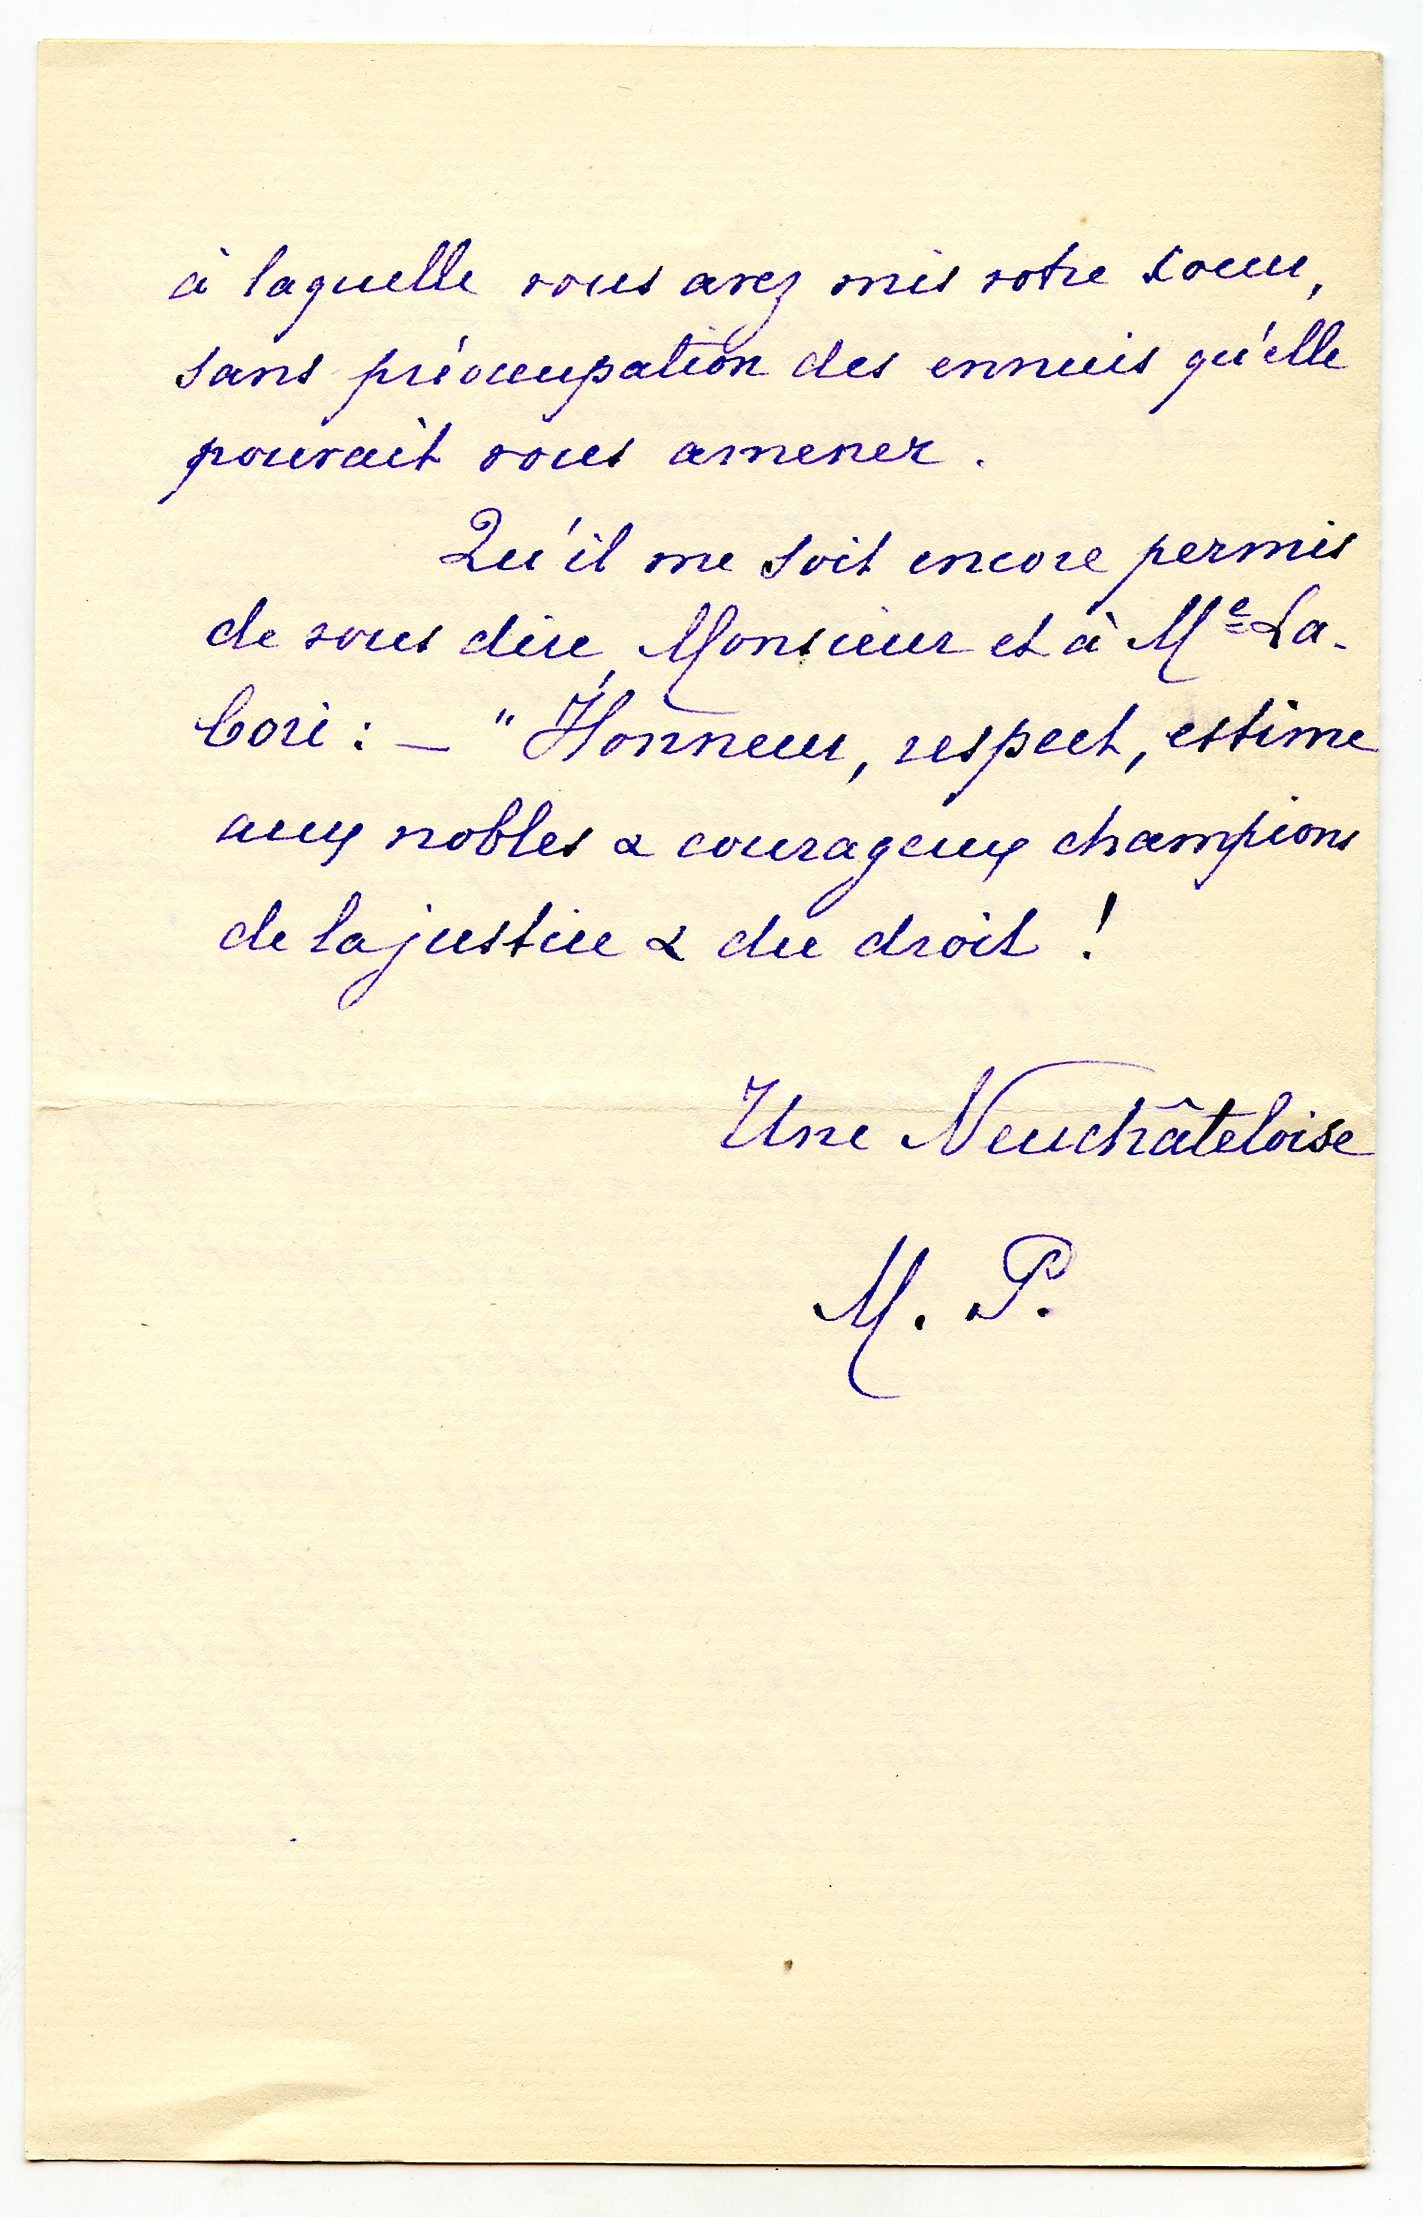 à laquelle vous avez mis votre coeur,
sans préoccupation des ennuis qu'elle
pouvait vous amener.
Qu'il me soit encore permis
de vous dire, Monsieur et à Me La-
bori : — "Honneur, respect, estime
aux nobles & courageux champions
de la justice & du droit !
Une Neuchâteloise
M. P.